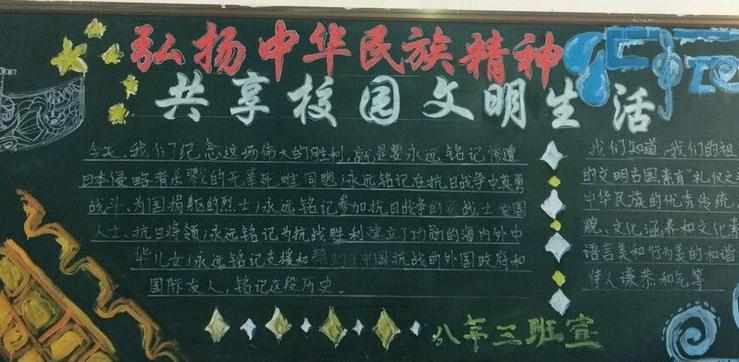 弘扬中华民族精神
共享校园文明生活
今天，我们纪念这场伟大的胜利，就是要永远铭记惨遭
日本侵略者杀戮的无辜死难同胞！永远铭记在抗日战争中英勇
战斗、为国捐躯的烈士！永远铭记参加抗日战争的老战士、爱国
人士、抗日将领！永远铭记为抗战胜利建立了功勋的海内外中
华儿女！永远铭记支援和中国抗战的外国政府和
国际友人，铭记这段历史。
我们知道，我们的祖
的文明古国素有"礼仪之
中华民族的优秀传统，
貌、文化涵养和文化素
语言美和行为美的和谐
待人谦恭和气等
八年三班宣